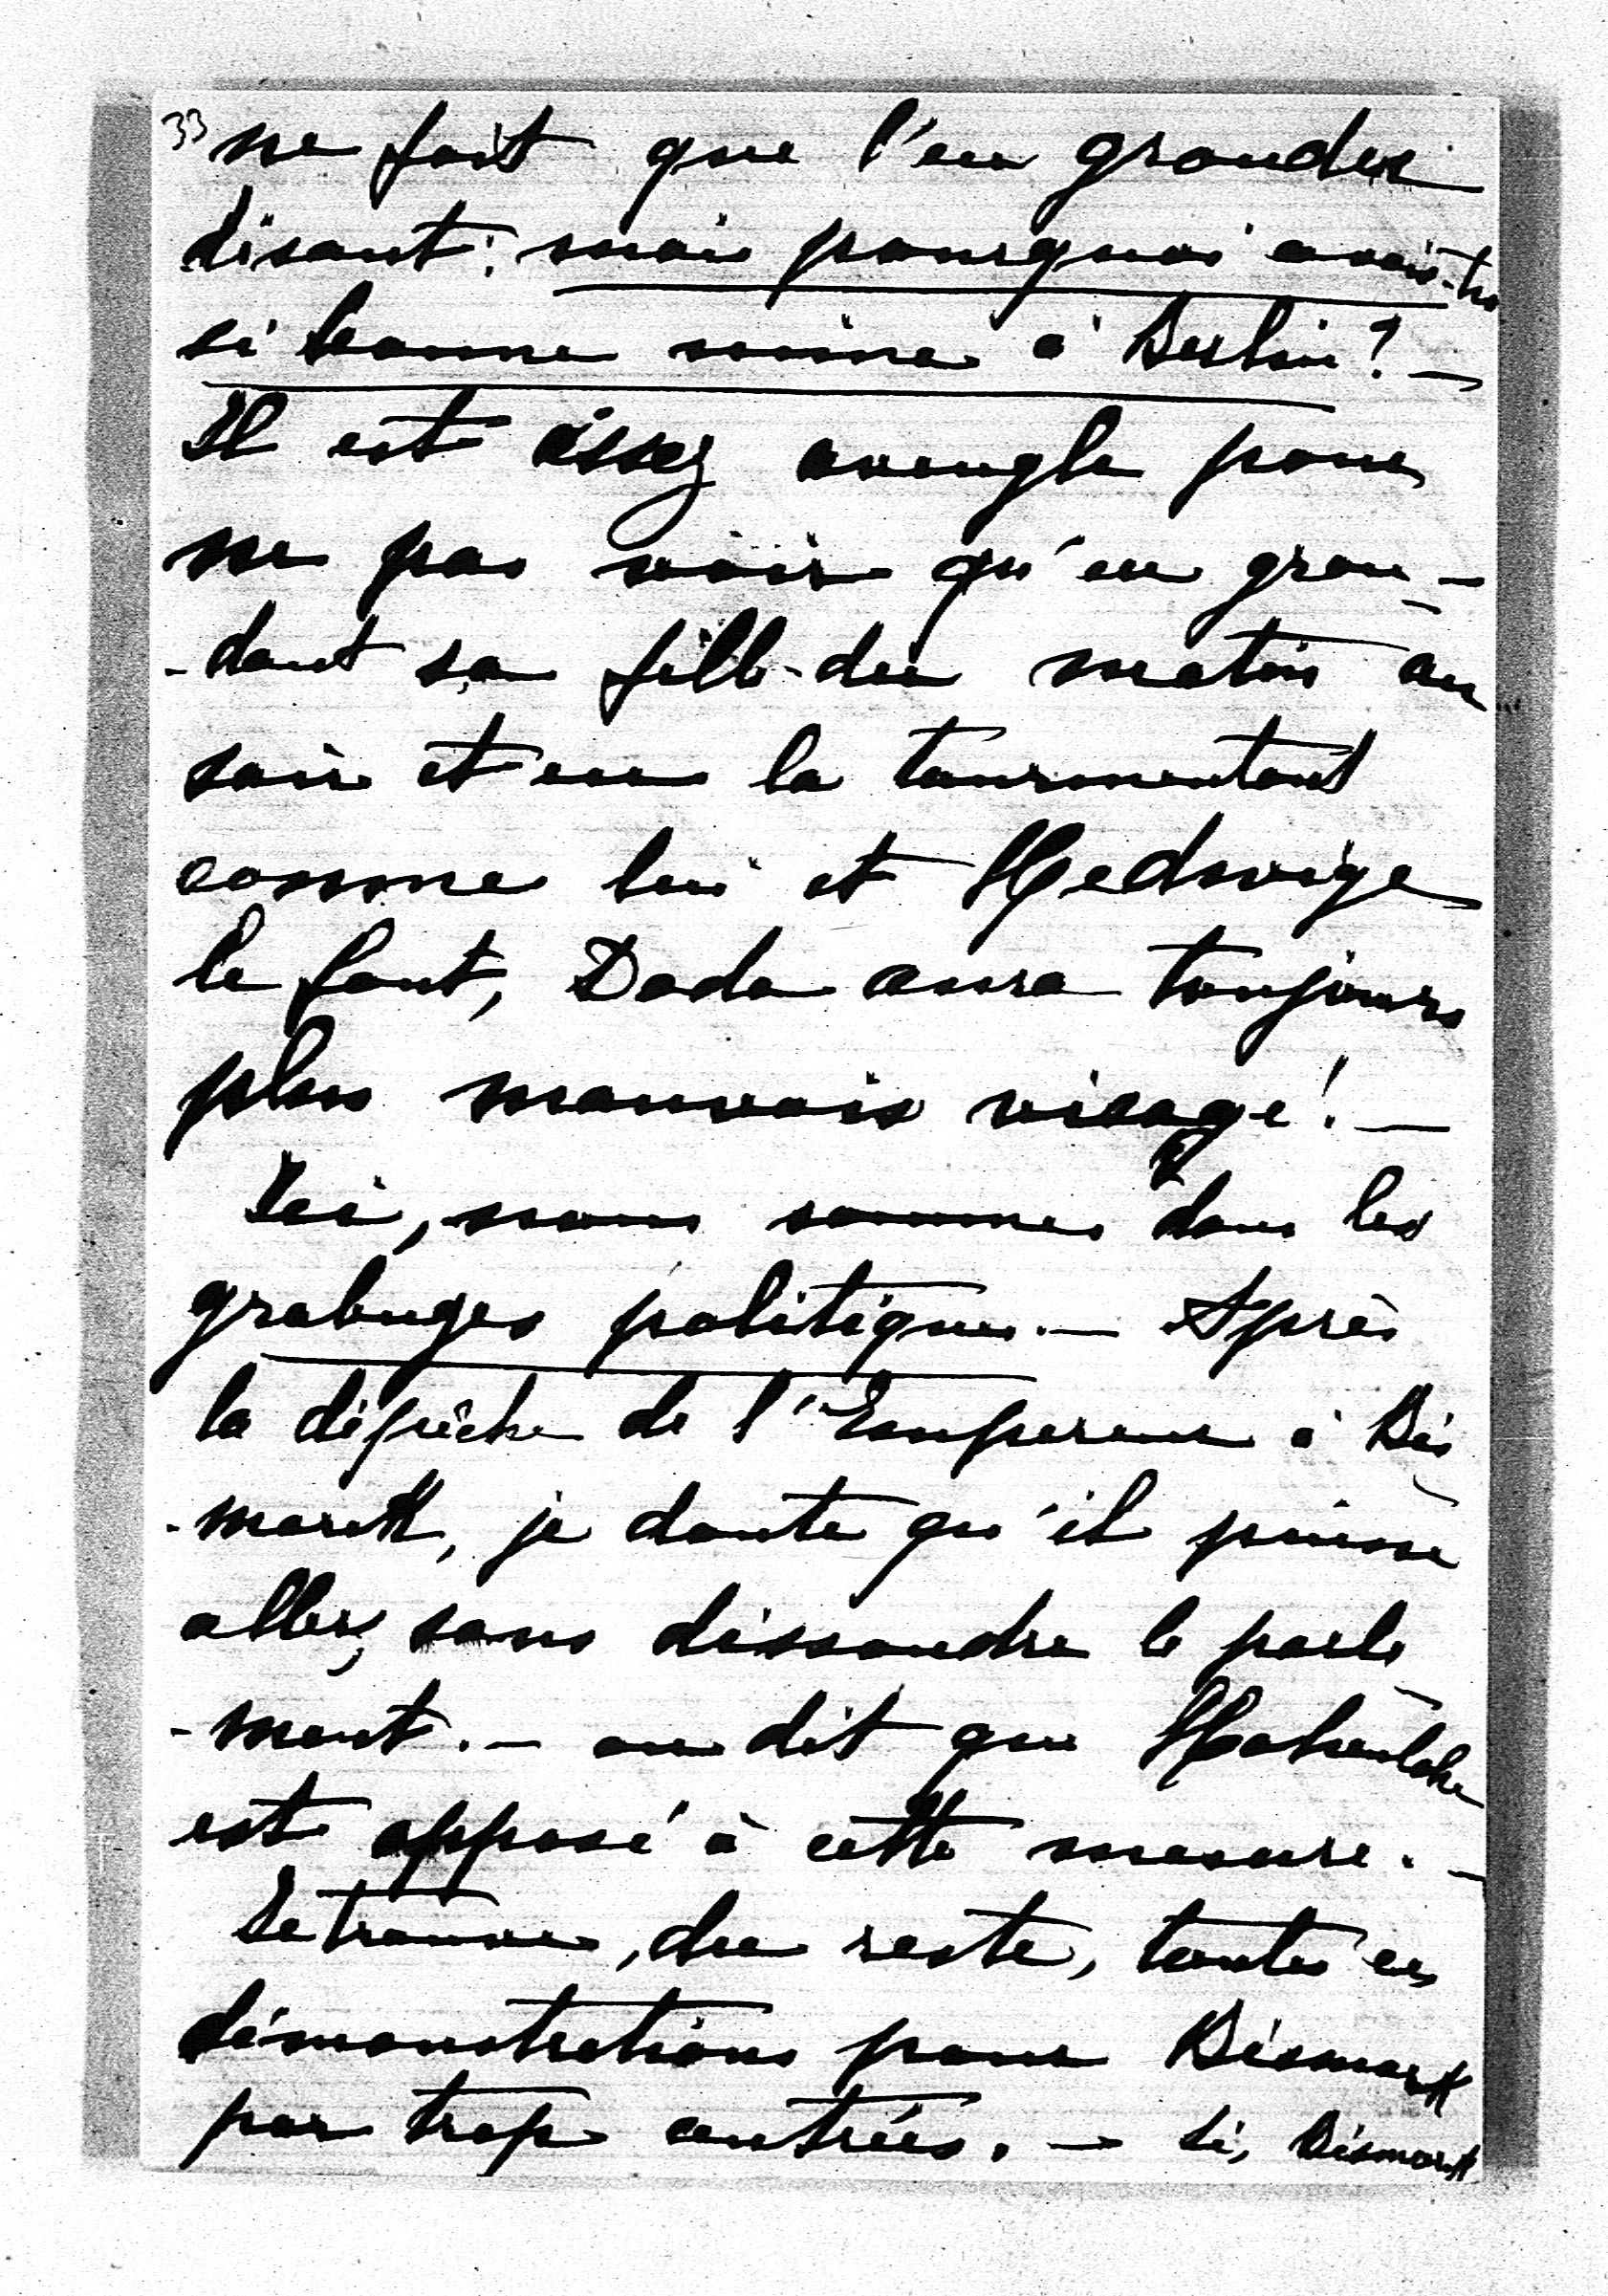 33 ne fait que l'en gronder
disant: mais pourquoi avais-tu
si bonne mine à Berlin? —
Il est assez aveugle pour
ne pas voir qu'en gron-
-dant sa fille du matin au
soir et en la tourmentant
comme lui et Hedwige
le font, Dada aura toujours
plus mauvais visage! —
Ici, nous sommes dans les
grabuges politiques. — Après
la dépêche de l'Empereur à Bis
-marck, je doute qu'il puisse
aller, sans dissoudre le parle
-ment. — on dit que Hohenlohe
est opposé à cette mesure. —
Je trouve, du reste, toutes ces
démonstrations pour Bismark
par trop outrées. — Si, Bismark